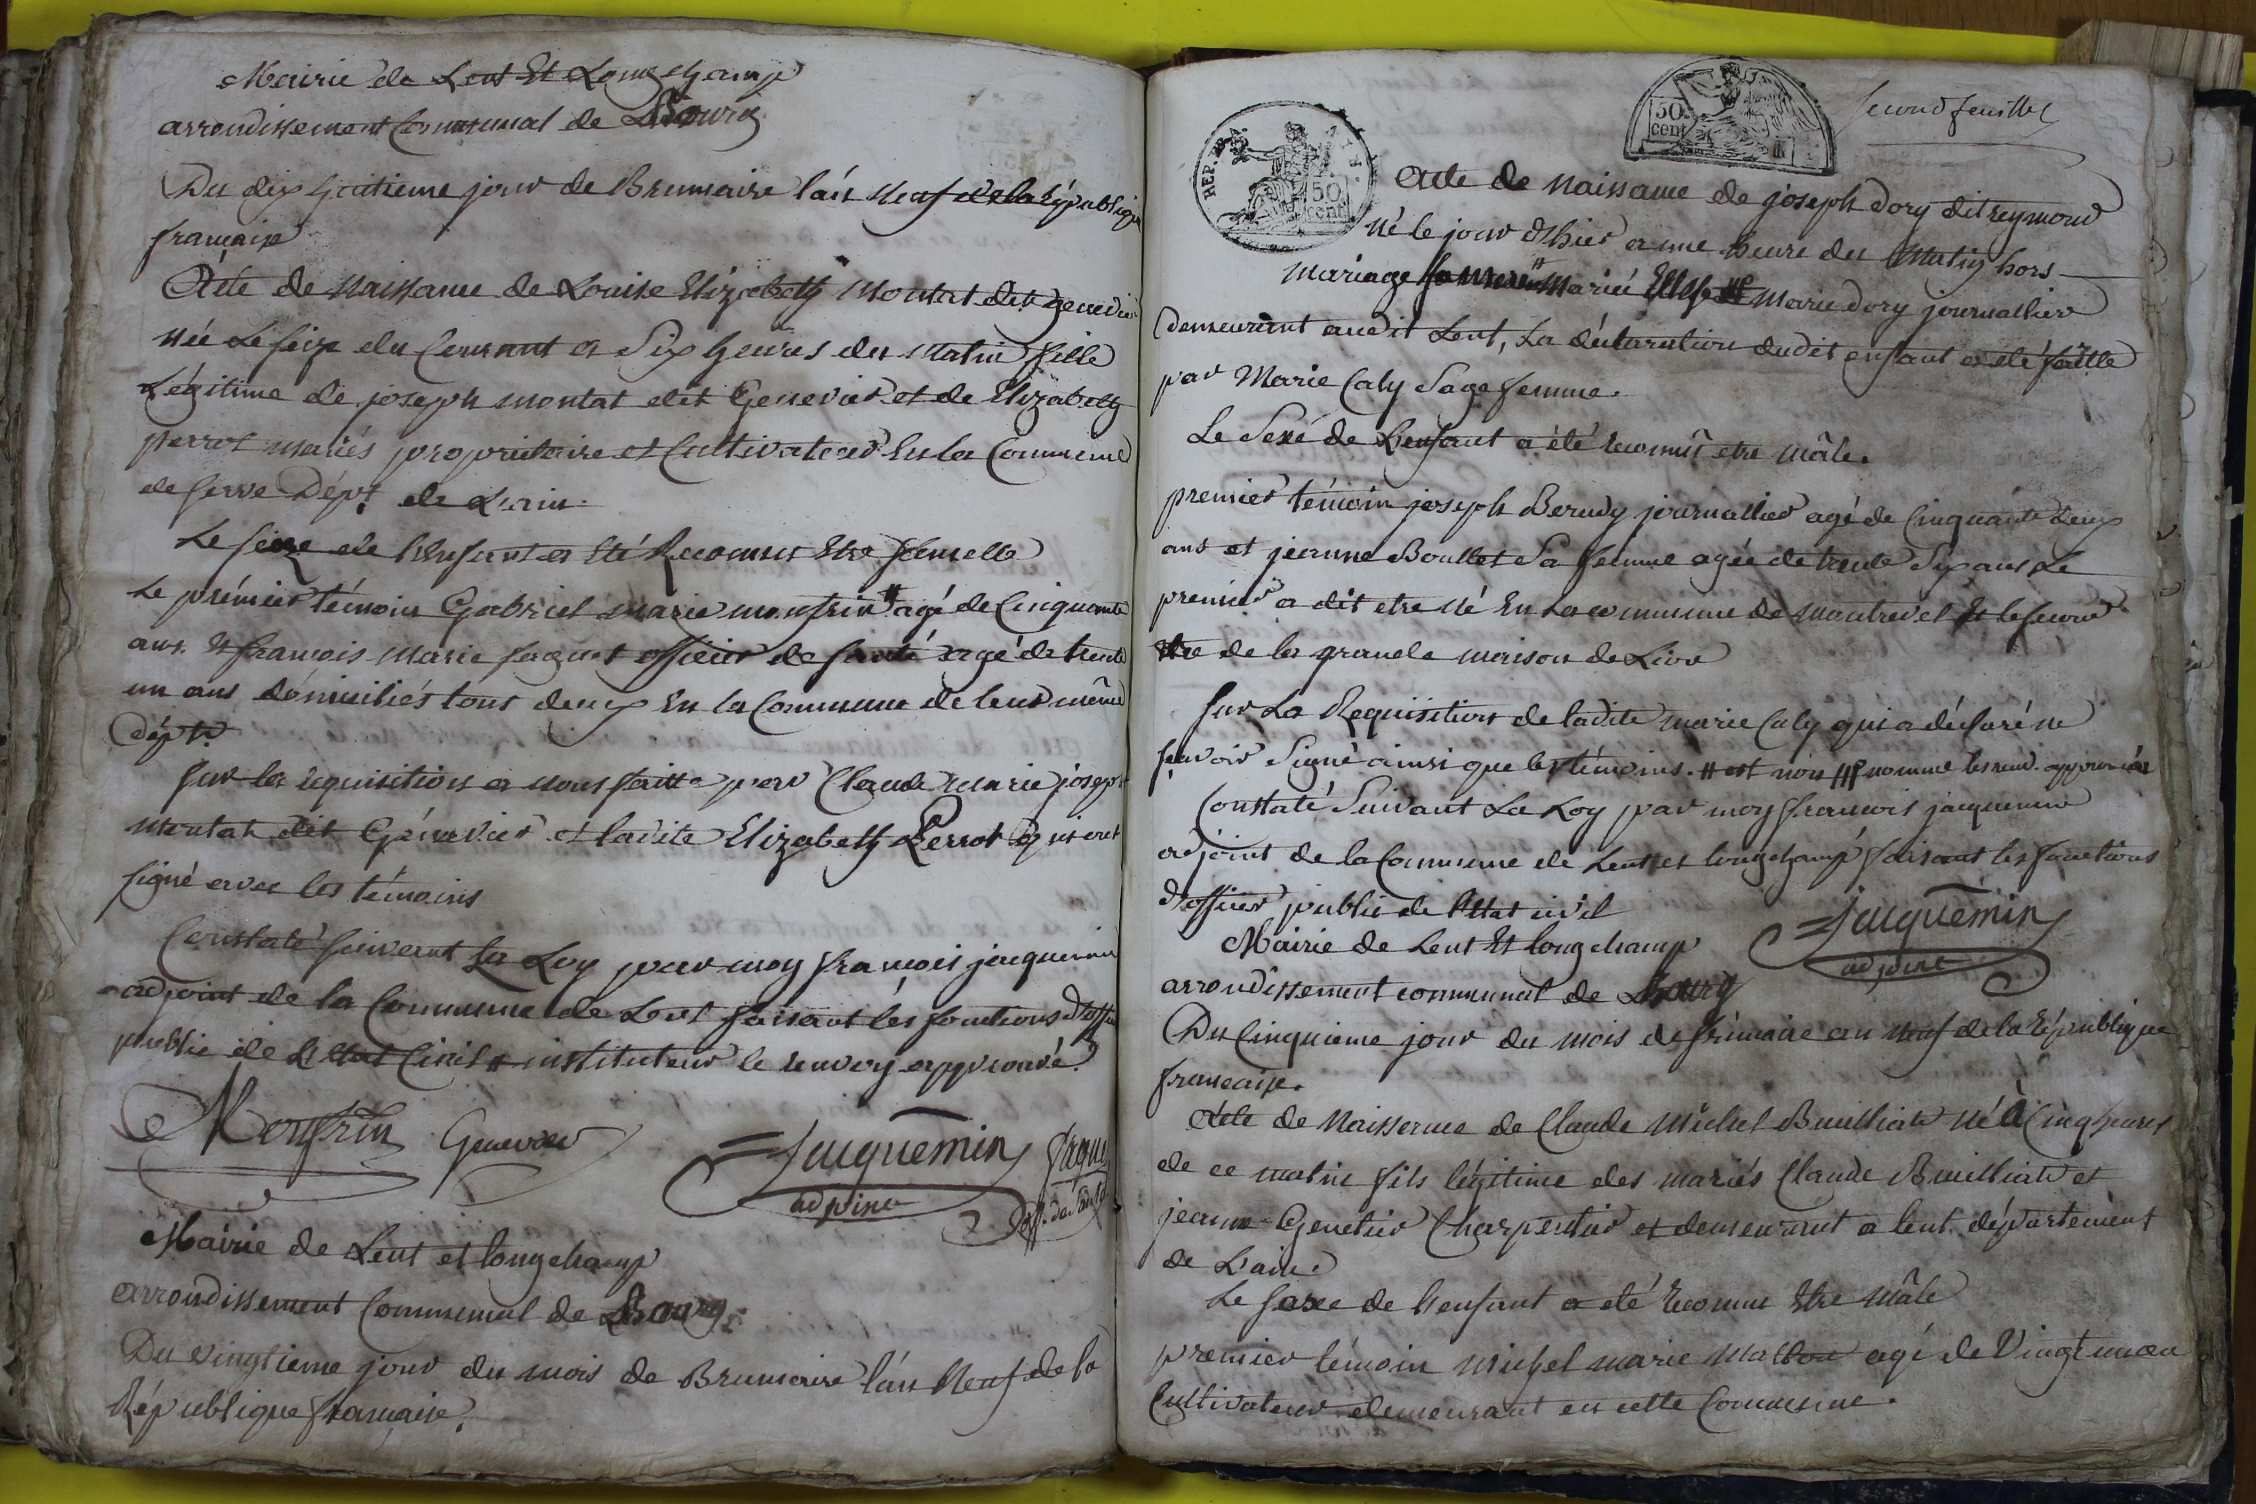 Mairie de Lent Et Longchamp
arrondissement Communal de Bourg
Du dix huitieme jour de Brumaire l'an Neuf de la République
francaise
Acte de Naissance de Louise Elizabeth Montat dit genevier
Née Le seize du Courant a Six heures du Matin fille
Légitime de joseph montat dit Genevier et de Elizabeth
perrot mariés propriétaire et Cultivateur En la Commune
de serve Dépt. de L'ain.
Le sexe de l'enfant a Eté Reconnu Etre femelle
Le prémier témoin Gabriel marie monfrin # agé de Cinquante
ans. Et francois Marie faguet officier de santé agé de trente
un ans démiciliés tous deux En la Commune de lent même
Dépt.
Sur la requisition a nous faitte par Claude marie joseph
Montat dit Génevier et ladite Elizabeth Perrot qui ont
signé avec les témoins
Constaté suivant La Loy par moy francois jacquemin
adjoint de la Commune de Lent faisant les fonctions d'officier
public de L'Etat Civil # instituteur le renvoy approuvé
Monfrin Genevier Jacquemin faguet
adjoint off. de santé
Mairie de Lent et longchamp
arrondissement Communal de Bourg
Du vingtieme jour du mois de Brumaire l'an Neuf de la
République francaise.
second feuillet
REP. FRA.
50
cent
50
cent
Acte de naissance de joseph dory dit reymond
Né le jour d'hier a une heure du Matin hors
Mariage sa mere # Marie dory journallier
Demeurant audit Lent, La déclaration dudit enfant a été faitte
par Marie Caly Sage femme.
Le Sexe de L'enfant a été reconnû etre mâle.
premier témoin joseph Berudy journallier agé de Cinquante deux
ans et jeanne Boullet Sa femme agée de trente Six ans Le
premier a dit etre Né En La commune de montrevel Et le second
Etre de la grande maison de Lion
Sur La Requisition de ladite marie Caly qui a déclaré ne
sçavoir Signé ainsi que les témoins. # est nois ### nommé les renv. approuvés
Constaté Suivant La Loy par moy francois jacquemin
adjoint de la Commune de Lent et longchamp faisant les fonctions
d'officier public de l'Etat civil
Jacquemin
adjoint
Mairie de Lent Et longchamp
arrondissement communal de Bourg
Du Cinquieme jour du mois de frimaire an Neuf de la République
francaise.
Acte de Naissance de Claude Michel Builliate né à Cinq heures
de ce matin fils légitime des mariés Claude Builliate et
jeanne Genetier Charpentier et demeurant a lent département
de L'ain.
Le sexe de l'enfant a eté reconnu Etre Mâle
premier témoin michel marie Matton agé de Vingt un an
Cultivateur demeurant en cette Commune.